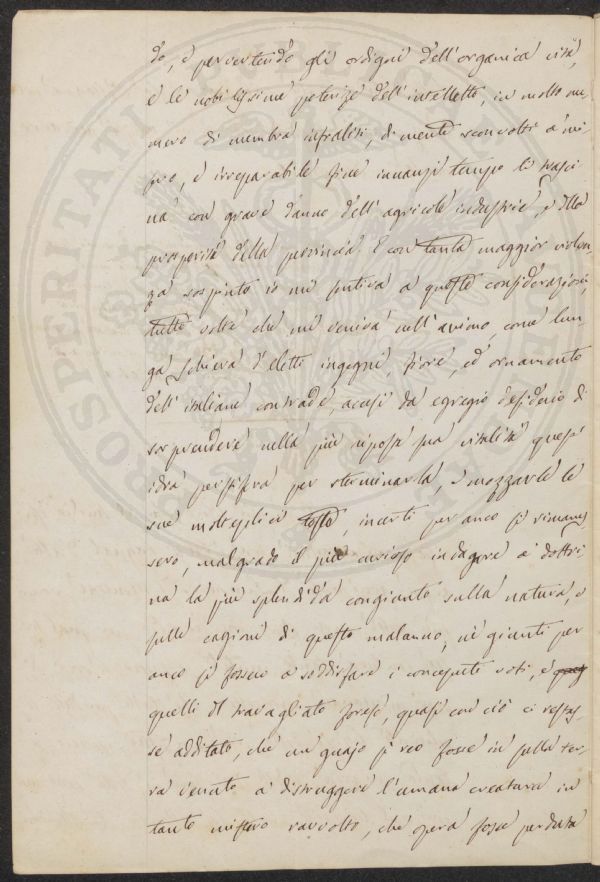 do, e pervertendo gli ordigni dell'organica vita,
e le nobilissime potenze dell'intelletto, in molto nu-
mero di membra infralisi, di mente sconvolti a mi-
sero, e irreparabile fine innanzi tempo li trasci
na con grave danno dell'agricole industrie, e della
prosperità della provincia. E con tanta maggior violen-
za sospinto io mi sentiva a queste considerazioni,
tutte volte che mi veniva nell'animo, come lun-
ga schiera d'eletti ingegni, fiore, ed ornamento
dell'italiane contrade, accesi da egregio desiderio di
sorprendere nella più riposta sua vitalità quest'
idra pestifera per sterminarla, e mozzarle le
sue molteplici teste, incerti per anco si rimanes
sero, malgrado il più curioso indagare a dottri-
na la più splendida congiunto sulla natura, e
sulle cagioni di questo malanno, nè giunti per
anco si fossero a soddisfare i concepiti voti, e
quelli del travagliato forese, quasi con ciò ci restas-
se additato, che un guajo sì reo fosse in sulla ter-
ra venuto a distruggere l'umana creatura in
tanto mistero ravvolto, che opera fosse perduta